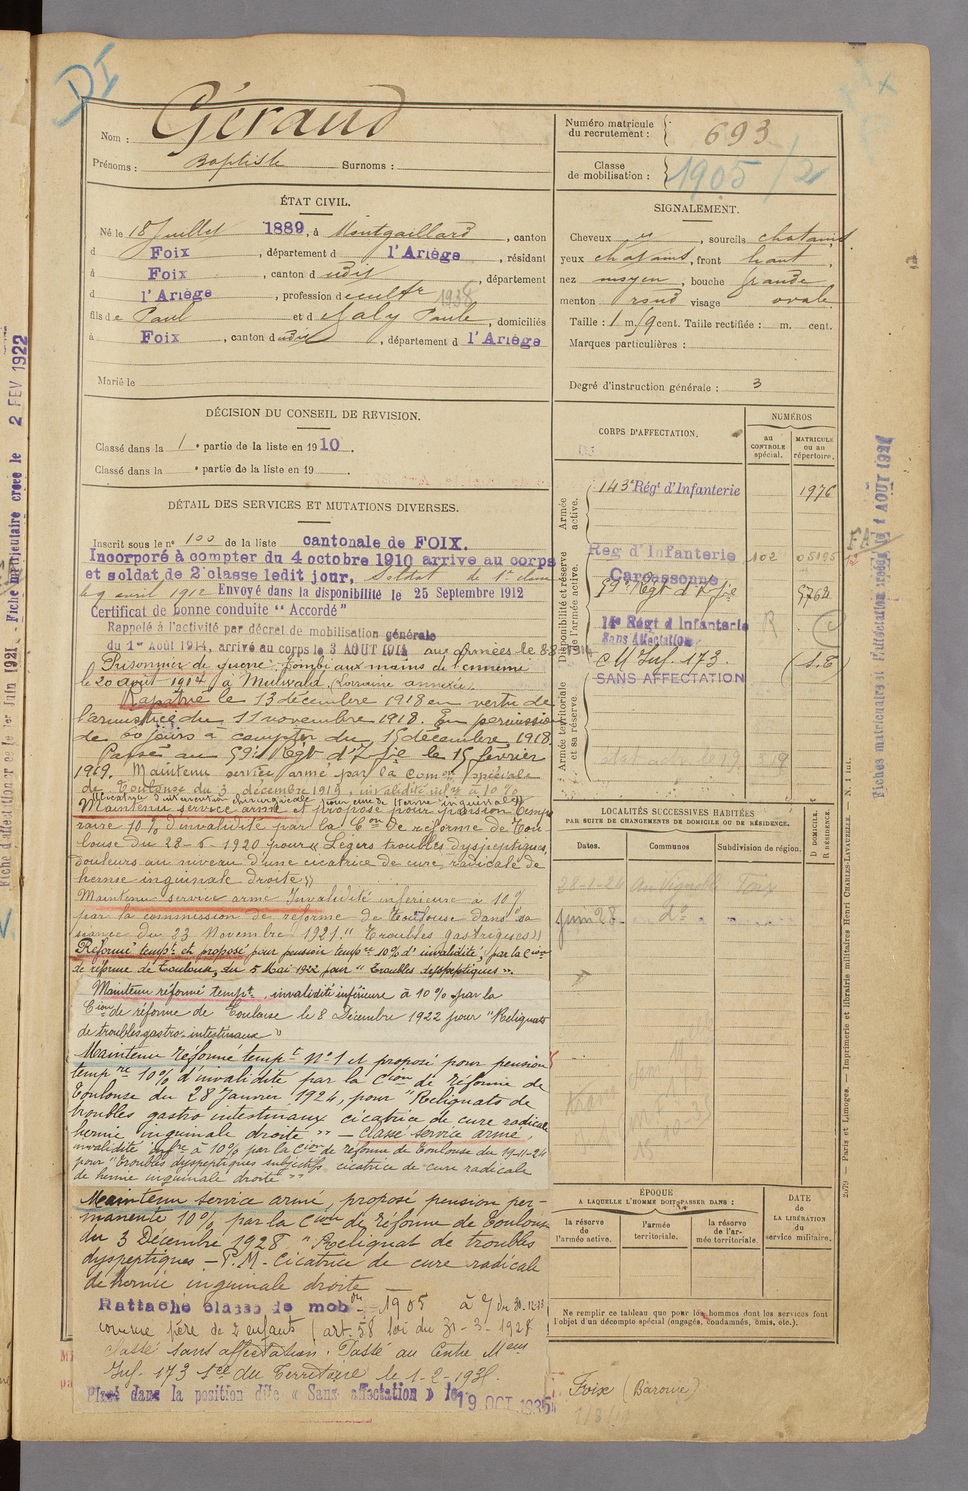 DI
Nom : Géraud
Prénoms : Baptiste Surnoms :
ÉTAT CIVIL.
Né le 18 Juillet 1889, à Montgaillard, canton
d Foix, département d l'Ariège, résidant
à Foix, canton d udit, département
d l'Ariège, profession d cultr 1938
fils de Paul et d Galy Paule, domiciliés
à Foix, canton d udit, département d l'Ariège
Marié le
DÉCISION DU CONSEIL DE REVISION.
Classé dans la 1e partie de la liste en 1910.
Classé dans la e partie de la liste en 19 .
DÉTAIL DES SERVICES ET MUTATIONS DIVERSES.
Inscrit sous le n° 100 de la liste cantonale de FOIX.
Incorporé à compter du 4 octobre 1910 arrivé au corps
et soldat de 2e classe ledit jour, Soldat de 1re classe
le 9 avril 1912 Envoyé dans la disponibilité le 25 Septembre 1912
Certificat de bonne conduite "Accordé"
Rappelé à l'activité par décret de mobilisation générale
du 1er Août 1914, arrivé au corps le 3 AOUT 1914 aux armées le 8-8-1914
Prisonnier de guerre. Tombé aux mains de l'ennemi
le 20 août 1914 à Mulwald (Lorraine annexée).
Rapatrié le 13 décembre 1918 en vertu de
l'armistice du 11 novembre 1918. En permission
de 60 jours à compter du 15 décembre 1918.
Passé au 59e Régt d'Ifie le 15 février
1919. Maintenu service armé par la Comon spéciale
de Toulouse du 3 décembre 1919, invalidité infre à 10%
Maintenu service armé et proposé pour pension tempo
raire 10% d'invalidité par la Con de réforme de Tou-
louse du 28-6-1920 pour "Légers troubles dyspeptiques,
douleurs au niveau d'une cicatrice de cure radicale de
hernie inguinale droite"
Maintenu service armé Invalidité inférieure à 10%
par la commission de réforme de Toulouse dans sa
séance du 23 Novembre 1921. "Troubles gastriques"
Réformé tempt et proposé pour pension tempre 10% d'invalidité, par la Cion
de réforme de Toulouse, du 5 Mai 1922 pour "Troubles dyspeptiques".
Maintenu réformé tempt. invalidité inférieure à 10% par la
Cion de réforme de Toulouse le 8 Décembre 1922 pour "Reliquats
de troubles gastro-intestinaux"
Maintenu réformé tempt N°1 et proposé pour pension
tempre 10% d'invalidité par la Cion de réforme de
Toulouse du 28 Janvier 1924, pour "Reliquats de
troubles gastro intestinaux cicatrice de cure radicale
hernie inguinale droite" - classé service armé,
invalidité infre à 10% par la Cion de réforme de Toulouse du 19-11-24
pour "Troubles dyspeptiques subjectifs cicatrice de cure radicale
de hernie inguinale droite"
Maintenu service armé, proposé pension per-
manente 10% par la Cion de réforme de Toulouse
du 3 Décembre 1928 "Reliquat de troubles
dyspeptiques - P.M. Cicatrice de cure radicale
de hernie inguinale droite
Rattaché classe de mobon 1905
comme père de 2 enfants (art. 58 loi du 31-3-1928
Classé sans affectation. Passé au Centre Meur
Inf. 173 Sce du Territoire le 1-2-193
Placé dans la position dite « Sans affectation » le 19 OCT 1935
Numéro matricule du recrutement : 693
Classe de mobilisation : 1905/2
SIGNALEMENT.
Cheveux et, sourcils chatains
yeux chatains, front haut,
nez moyen, bouche grande
menton rond visage ovale
Taille : 1 m. 59 cent. Taille rectifiée : m. cent.
Marques particulières :
Degré d'instruction générale : 3
CORPS D'AFFECTATION.
NUMÉROS
au CONTROLE spécial.
MATRICULE ou au répertoire.
Armée active.
143e Régt d'Infanterie 1976
Disponibilité et réserve de l'armée active.
Reg d'Infanterie 102 05195
Carcassonne
59e Régt d'Ifie 9762
14e Régt d'Infanterie R
Sans Affectation
C M Inf. 173. (S.E)
SANS AFFECTATION
Armée territoriale et sa réserve.
LOCALITÉS SUCCESSIVES HABITÉES
PAR SUITE DE CHANGEMENTS DE DOMICILE OU DE RÉSIDENCE.
Dates. Communes Subdivision de région. D. DOMICILE. R. RÉSIDENCE.
28-1-26 Foix
Juin 28 do
ÉPOQUE
A LAQUELLE L'HOMME DOIT PASSER DANS :
la réserve de l'armée active.
l'armée territoriale.
la réserve de l'armée territoriale.
DATE de LA LIBÉRATION du service militaire.
Ne remplir ce tableau que pour les hommes dont les services font
l'objet d'un décompte spécial (engagés, condamnés, omis, etc.).
Foix (Barouse)
2079 — Paris et Limoges. — Imprimerie et librairie militaires Henri CHARLES-LAVAUZELLE. N. 1 int.
Fiche matriculaire créée le 2 FEV 1922
Fiche d'affectation créée le 1er Juin 1921